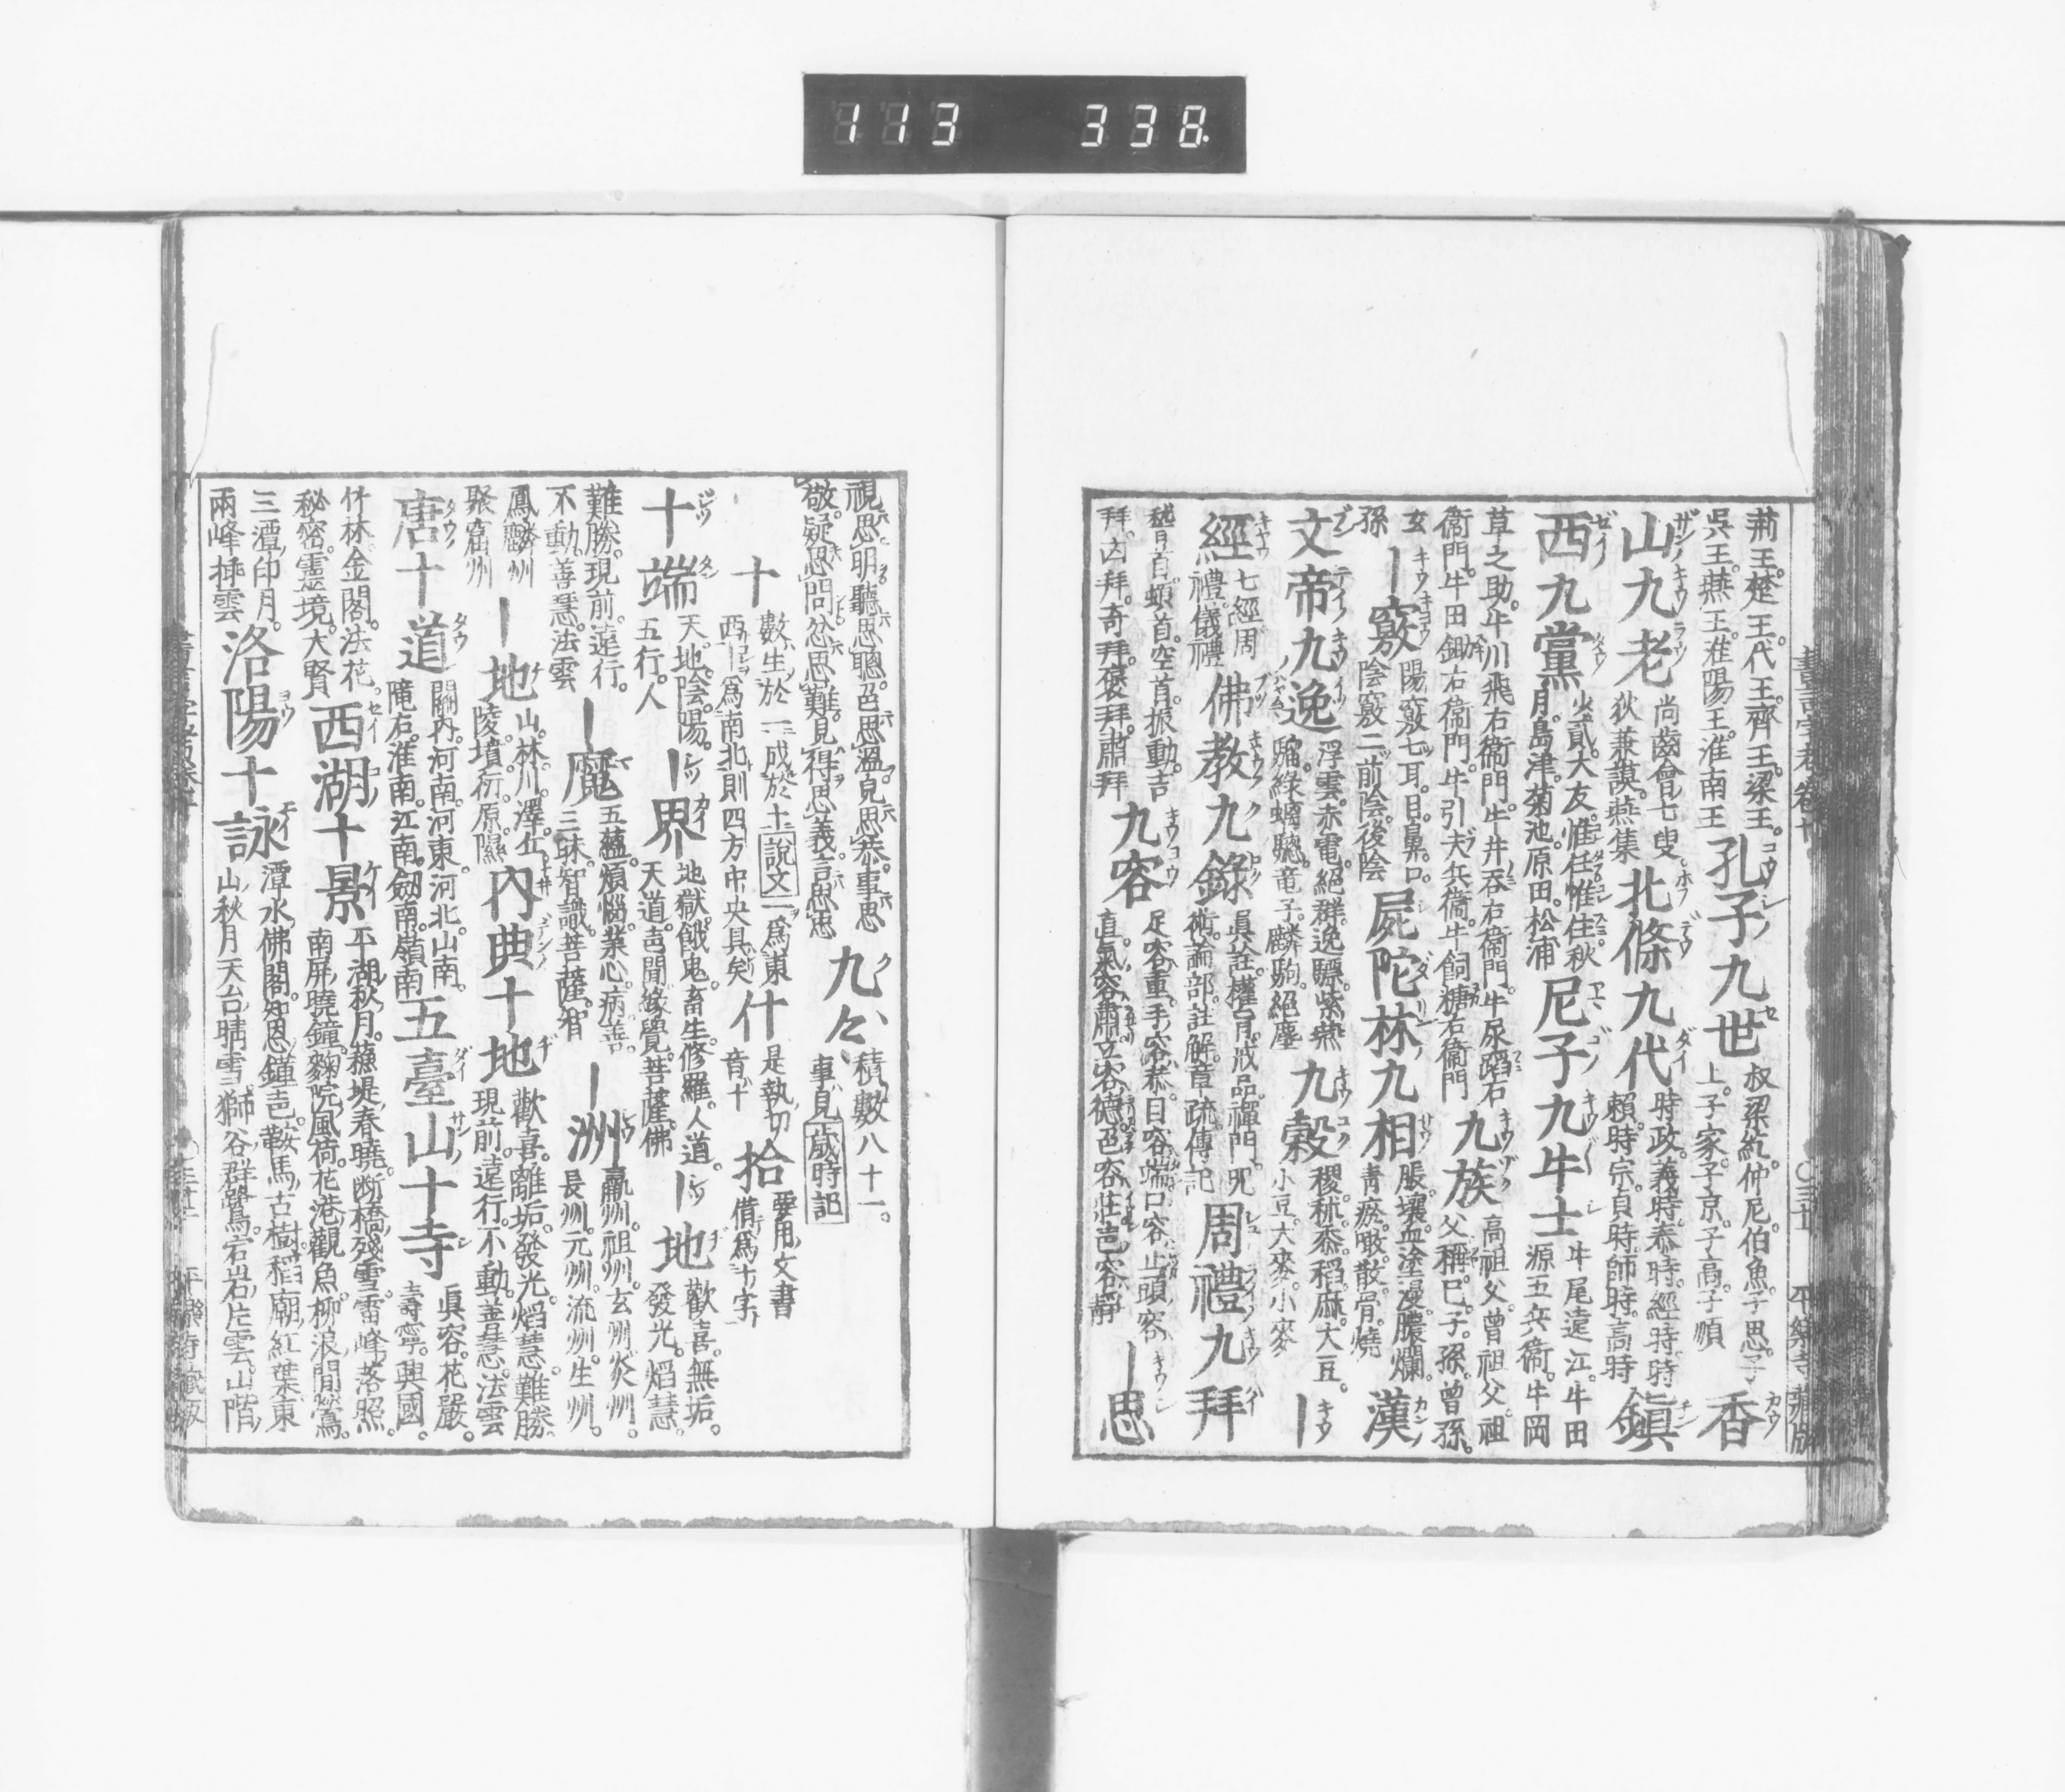 113 338
荊王。楚王。代王。齊王。梁王。
吳王。燕王。淮陽王。淮南王
孔子九世
叔梁紇。仲尼。伯魚。子思。子
上。子家。子京。子高。子順
香
山九老
尚齒會。七叟。
狄兼謨。燕集
北條九代
時政。義時。泰時。經時。時
賴。時宗。貞時。師時。高時
鎭
西九黨
少貳。大友。惟任。惟住。秋
月。島津。菊池。原田。松浦
尼子九牛士
牛尾遠江。牛田
源五兵衞。牛岡
草之助。牛川飛右衞門。牛井呑右衞門。牛尿蹈右
衞門。牛田鋤右衞門。牛引夫兵衞。牛飼糖右衞門
九族
高祖父。曾祖父。祖
父。稱。已。子。孫。曾孫。
玄
孫
｜竅
陽竅七。耳。目。鼻。口。
陰竅二。前陰。後陰
屍陀林九相
脹。壞。血塗。漫膿爛
靑瘀。噉。散。骨。燒
漢
文帝九逸
浮雲。赤電。絕群。逸驃。紫燕
騮。綠螭驄。竜子。麟駒。絕塵
九穀
稷。秫。黍。稻。麻。大豆。
小豆。大麥。小麥
｜
經
七經。周
禮。儀禮
佛教九錄
眞詮。權旨。戒品。禪門。咒
術。論部。註解。章疏。傳記
周禮九拜
稽首。頓首。空首。振動。吉
拜。凶拜。奇拜。褒拜。肅拜
九容
足容重。手容恭。目容端。口容止。頭容
直。氣容肅。立容德。色容莊。㐌容靜
｜思
視思明。聽思聰。色思溫。皃思恭。事思
敬。疑思問。忿思難。見得思義。言思忠
九々
積數八十一。
事見歲時記
十
數生於一。成於十。說文一爲東
西｜爲南北。則四方中央具矣
什
是執切
音十
拾
要用文書
借爲十字
十端
天。地。陰。陽。
五行。人
｜界
地獄。餓鬼。畜生。修羅。人道。
天道。㐌聞。緣覺。菩薩。佛
｜地
歡喜。無垢。
發光。焰慧。
難勝。現前。遠行。
不動。善慧。法雲
｜魔
五蘊。煩惱。業。心。病。善。
三昧。智識。菩薩。智
｜洲
瀛洲。祖洲。玄洲。炎洲。
長洲。元洲。流洲。生洲。
鳳麟州
聚窟州
｜地
山。林。川。澤。丘。
陵。墳。衍。原。隰
內典十地
歡喜。離垢。發光。焰慧。難勝。
現前。遠行。不動。善慧。法雲
唐十道
關內。河南。河東。河北。山南。
隴右。淮南。江南。劔南。嶺南
五臺山十寺
眞容。花嚴。
壽寧。興國。
竹林。金閣。法花。
秘密。靈境。大賢
西湖十景
平湖秋月。蘇堤春曉。斷橋殘雪。雷峰落照。
南屏曉鐘。麴院風荷。花港觀魚。柳浪聞鶯。
三潭印月。
兩峰揷雲
洛陽十詠
潭水佛閣。知恩鐘㐌。鞍馬古樹。稻廟紅葉。東
山秋月。天台晴雪。獅谷群鷺。岩片雲。山階